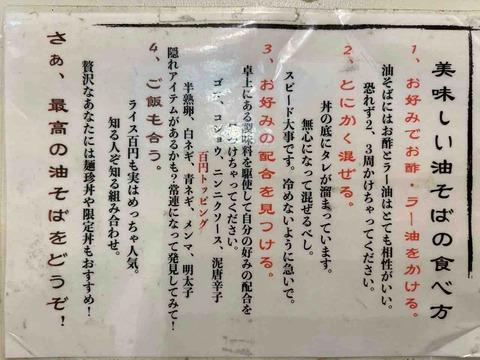 美味しい油そばの食べ方
1、お好みでお酢・ラー油をかける。
油そばにはお酢とラー油はとても相性がいい。
恐れず2、3周かけちゃってください。
2、とにかく混ぜる。
丼の底にタレが溜まっています。
無心になって混ぜるべし。
スピード大事です。冷めないように急いで。
3、お好みの配合を見つける。
卓上にある調味料を駆使して自分の好みの配合を
けちゃってください。
ゴマ、コショウ、ニンニクソース、泥唐辛子
百円トッピング
半熟卵、白ネギ、青ネギ、メンマ、明太子
隠れアイテムがあるかも?常連になって発見してみて!
4、ご飯も合う。
ライス百円も実はめっちゃ人気。
知る人ぞ知る組み合わせ。
贅沢なあなたには麺珍丼や限定丼もおすすめ!
さぁ、最高の油そばをどうぞ!